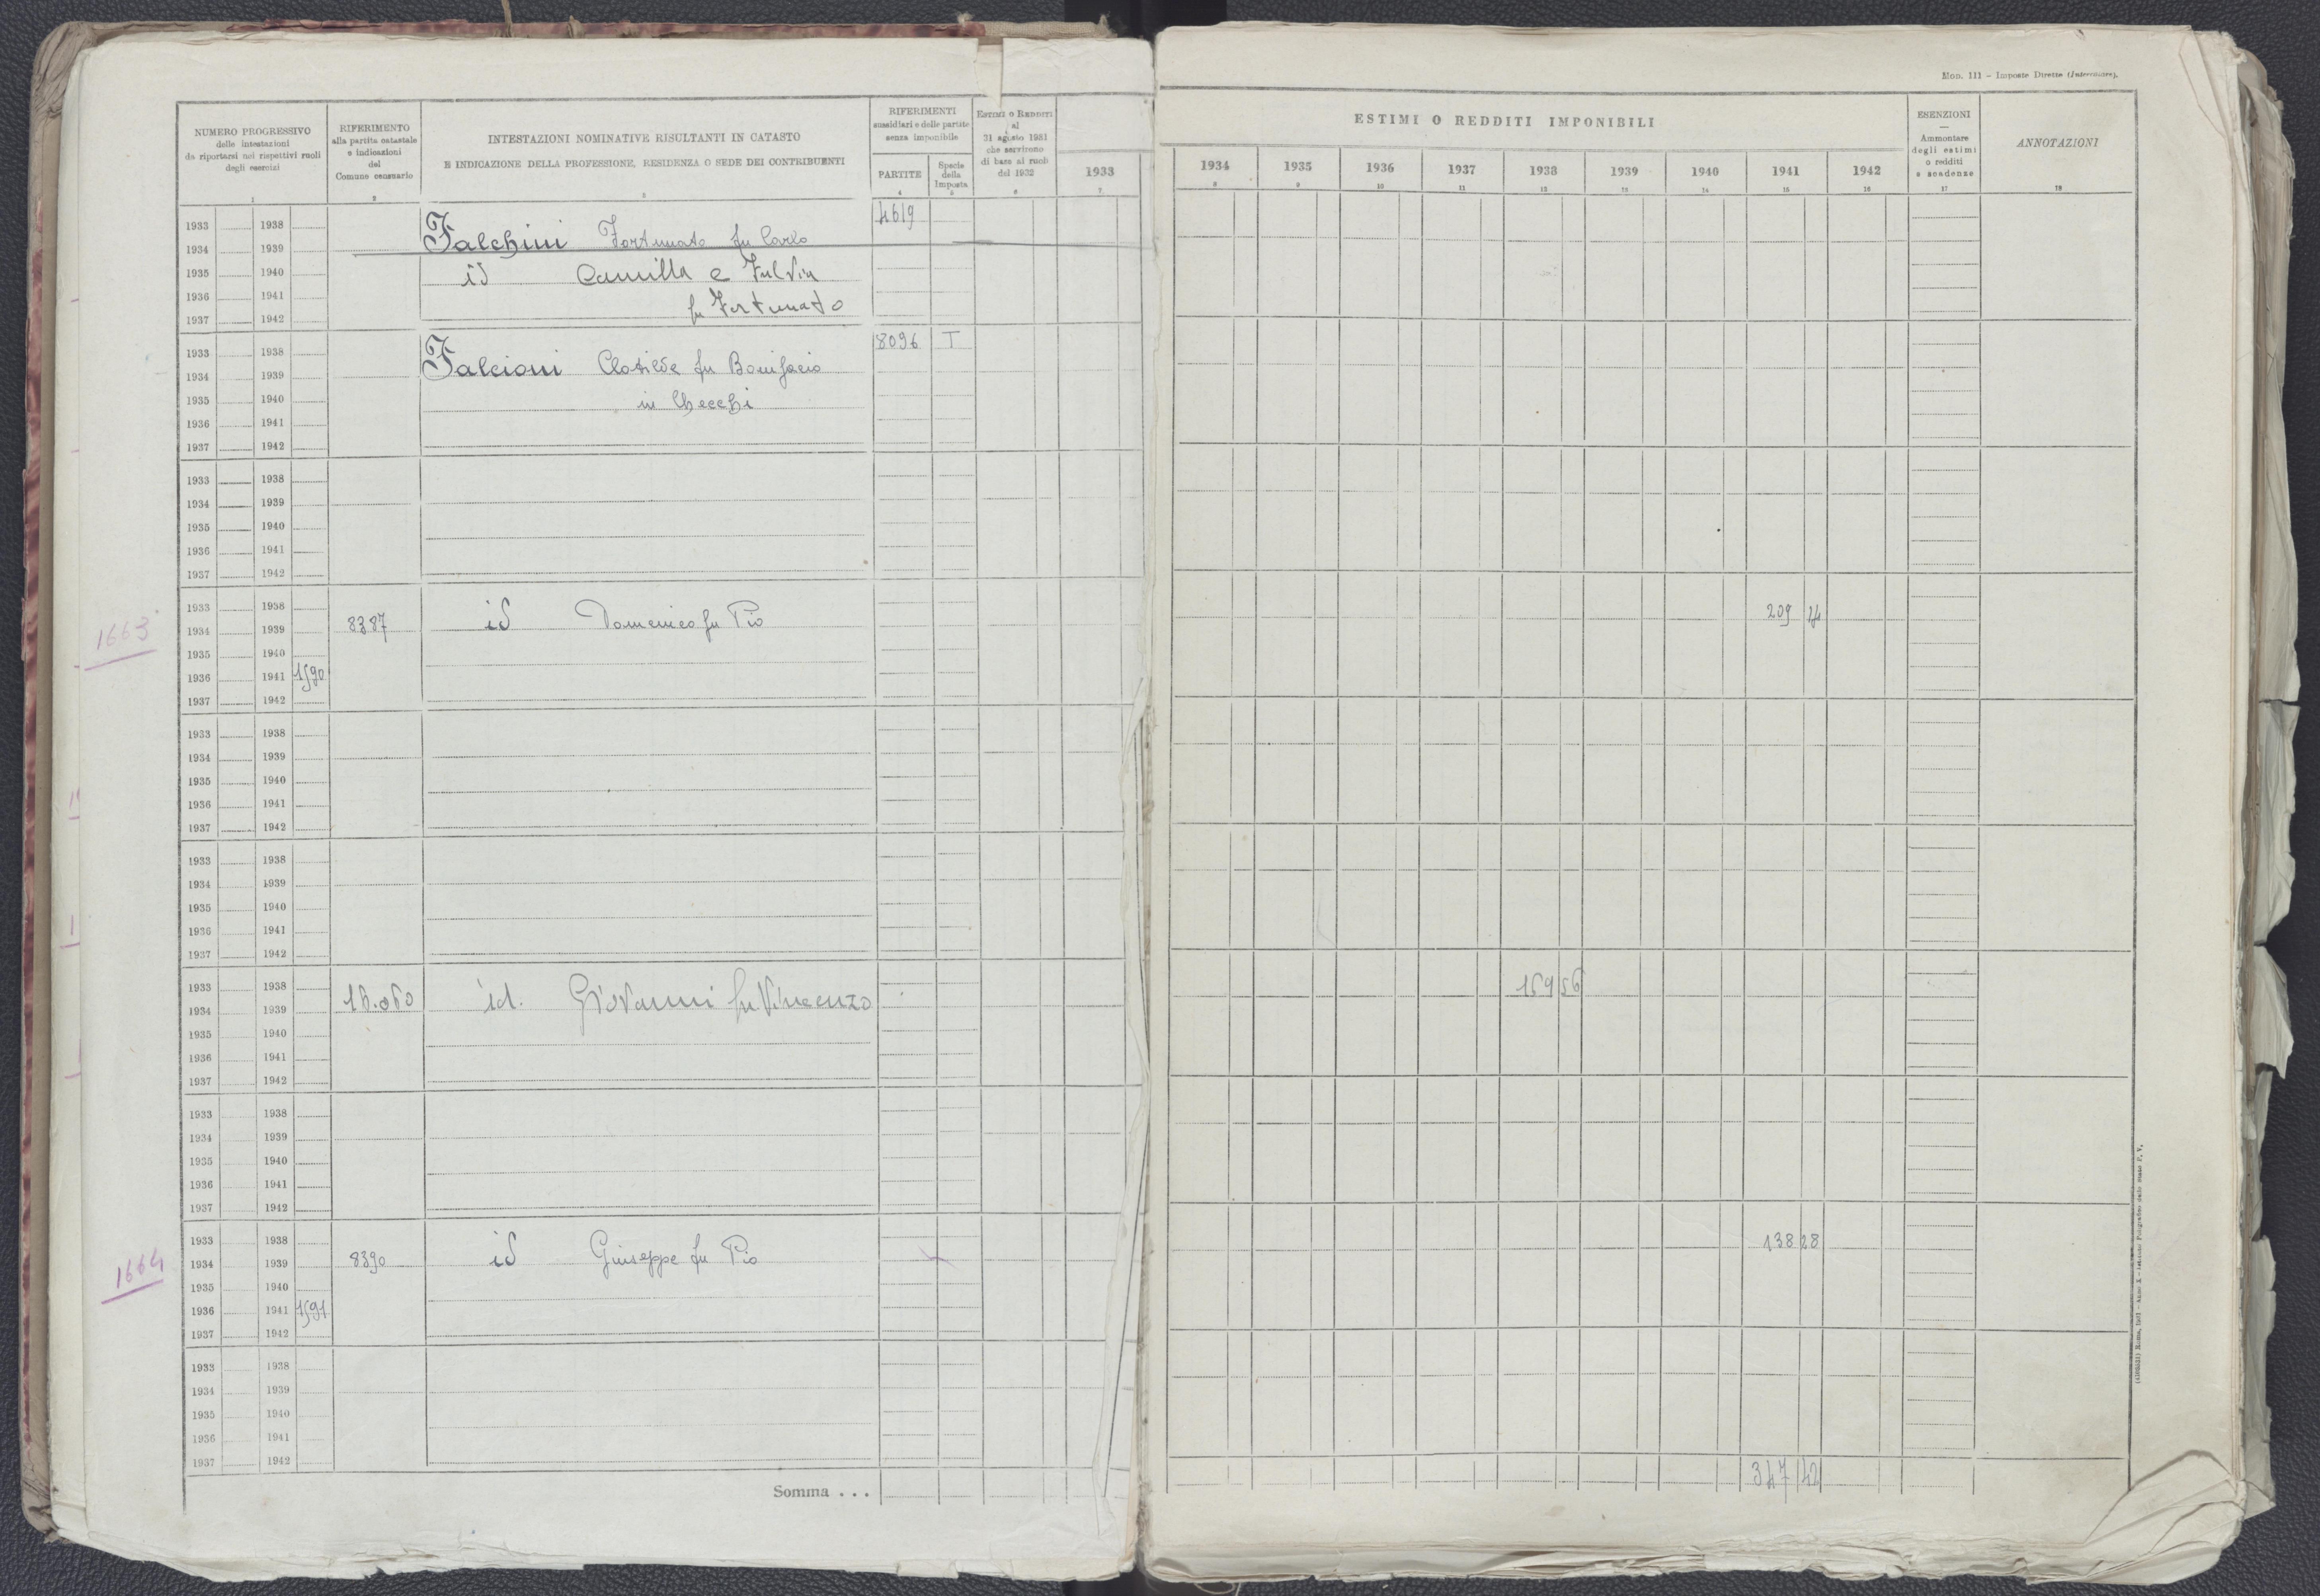 Mod. 111 – Imposte Dirette (Intercalare).
NUMERO PROGRESSIVO
delle intestazioni
da riportarsi nei rispettivi ruoli
degli esercizi
1
RIFERIMENTO
alla partita catastale
e indicazioni
del
Comune censuario
2
INTESTAZIONI NOMINATIVE RISULTANTI IN CATASTO
E INDICAZIONE DELLA PROFESSIONE, RESIDENZA O SEDE DEI CONTRIBUENTI
3
RIFERIMENTI
sussidiari e delle partite
senza imponibile
PARTITE
4
Specie
della
Imposta
5
ESTIMI O REDDITI
al
31 agosto 1931
che servirono
di base ai ruoli
del 1932
6
1933
7
ESTIMI O REDDITI IMPONIBILI
1934 1935 1936 1937 1938 1939 1940 1941 1942
8 9 10 11 12 13 14 15 16
ESENZIONI
—
Ammontare
degli estimi
o redditi
e scadenze
17
ANNOTAZIONI
18
4619
1933 1938 Falchini Fortunato fu Carlo
1934 1939
1935 1940 id Camilla e Fulvia
1936 1941 fu Fortunato
1937 1942
8096 T
1933 1938
1934 1939 Falcioni Clotilde fu Bonifacio
1935 1940 in Checchi
1936 1941
1937 1942
1933 1938
1934 1939
1935 1940
1936 1941
1937 1942
1933 1938 209 14
1663 1934 1939 8387 id Domenico fu Pio
1935 1940
1936 1941 1590
1937 1942
1933 1938
1934 1939
1935 1940
1936 1941
1937 1942
1933 1938
1934 1939
1935 1940
1936 1941
1937 1942
1933 1938 159 56
1934 1939 id. Giovanni fu Vincenzo
1935 1940
1936 1941
1937 1942
1933 1938
1934 1939
1935 1940
1936 1941
1937 1942
1933 1938 138 28
1664 1934 1939 8390 id Giuseppe fu Pio
1935 1940
1936 1941 1591
1937 1942
1933 1938
1934 1939
1935 1940
1936 1941
1937 1942
Somma . . . 347 42